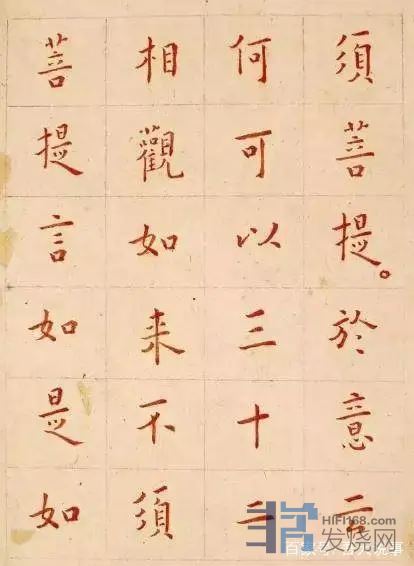 須菩提。於意云
何可以三十二
相觀如来不須
菩提言如是如
HIFI168.com
发烧网